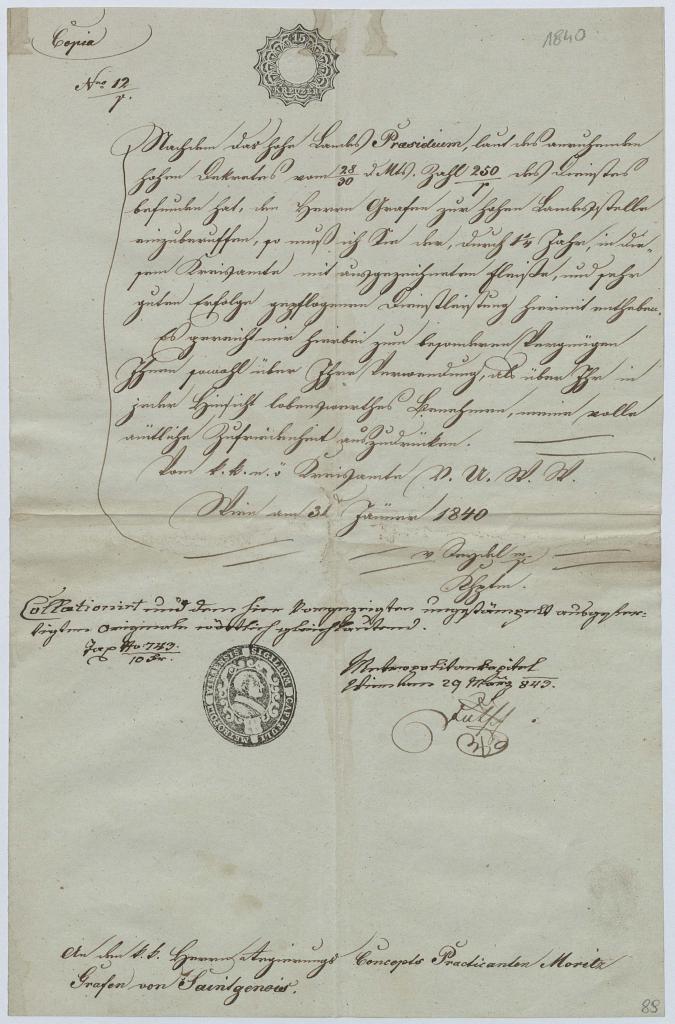 Copia
1840
15
KREUZER
Nro 12/p.
Nachdem das hohe Landes Præsidium, laut des anruhenden
hohen Dekretes vom 28/30 d. Mts. Zahl 250/p des Dienstes
befunden hat, den Herrn Grafen zur hohen Landesstelle
einzuberuffen, so muß ich Sie der, durch 1¼ Jahr, in die-
sem Kreisamte mit ausgezeichneten Fleiße, und sehr
guten Erfolge gepflogenen Dienstleistung hiermit entheben.
Es gereicht mir hierbei zum besonderen Vergnügen
Ihnen sowohl über Ihre Verwendung, als über Ihr in
jeder Hinsicht lobenswerthes Benehmen, meine volle
ämtliche Zufriedenheit auszudrücken.
Vom k. k. n. ö Kreisamte V. U. W. W.
Wien am 31 Jäner 1840
Collationirt und dem hier vorgezeigten ungestämpelt ausgefer-
tigten Originale wörtlich gleichlautend.
Tax No. 743.
10 kr.
Metropolitankapitel
Wien am 29 März 843.
SIGILLUM CAPITULI METROPOLIT VIENENSIS
An den k. k. Herrn Regierungs Concepts Practicanten Moritz
Grafen von Saintgenois.
89